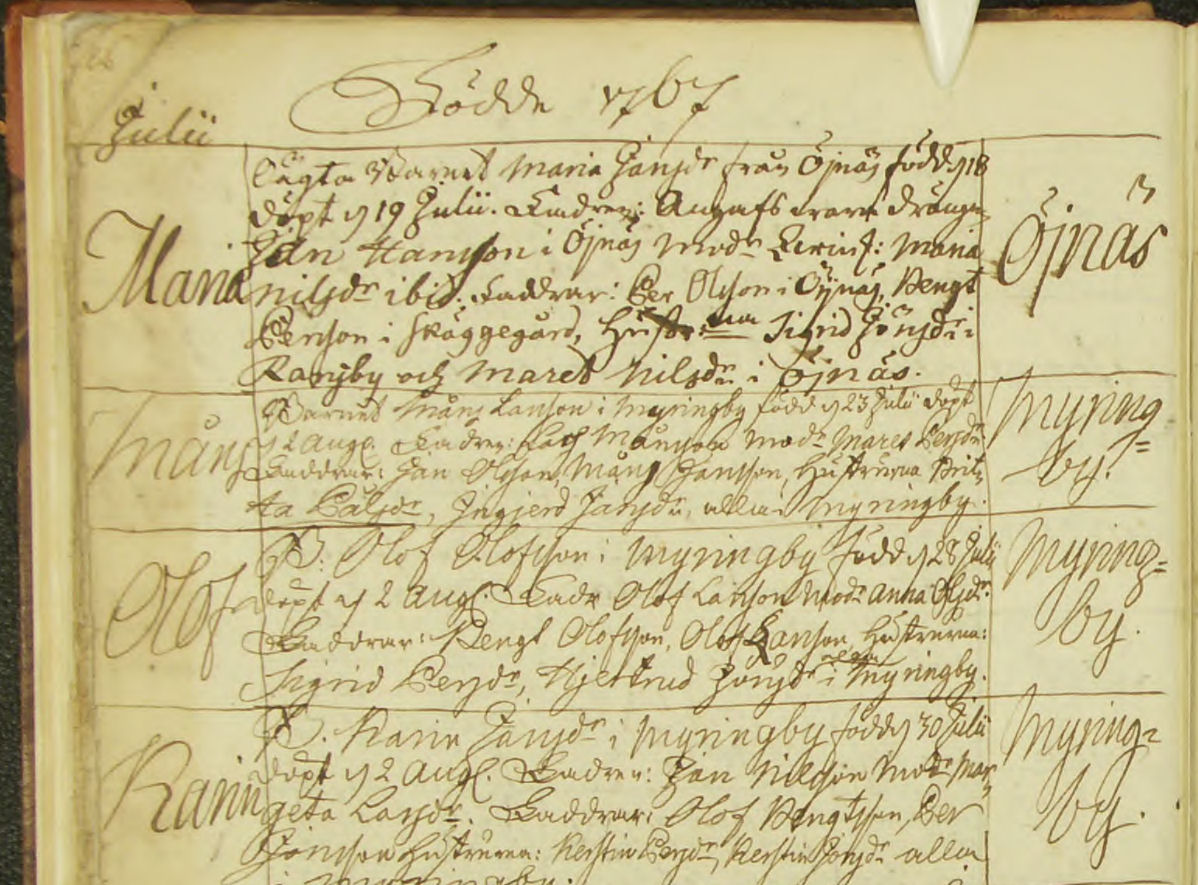 Julii
Födde 1767
Maria
Öjnäs
Oägta Barnet Maria Jansdr från Öjnäs född d 18
döpt d 19 Julii. Fadren: Angafs vara drängen
Jan Hansson i Öjnäs Modr Maria
Nilsdr ibid. Faddrar: Per Olsson i Öjnäs, Bengt
Person i Skäggegård, Hustr:na Sigrid Jönsdr i
Ransby och Maret Nilsdr i Öjnäs.
Måns
Myring=
by.
Barnet Måns Larsson i Myringby född d 23 Julii döpt
d 2 Aug. Fadren: Månsson Modr Maret Persdr
Faddrar: Jan Olsson, Måns Jansson, Hustrurna Brit=
ta Pålsdr, Ingierd Jansdr, alla i Myringby.
Olof
Myring=
by.
B. Olof Olofsson i Myringby född d 28 Julii
döpt d 2 Aug. Fadr Olof Larsson Modr Anna Olsdr.
Faddrar: Bengt Olofsson, Olof Larsson, Hustrurna:
Sigrid Persdr, Hjertrud Jönsdr alla i Myringby.
Karin
Myring=
by.
B. Karin Jansdr i Myringby född d 30 Julii
döpt d 2 Aug. Fadren: Jan Nilsson Modr Mar=
geta Larsdr. Faddrar: Olof Bengtsson, Per
Jönsson Hustrurna: Kerstin Persdr, Kerstin Jönsdr alla
i Myringby.